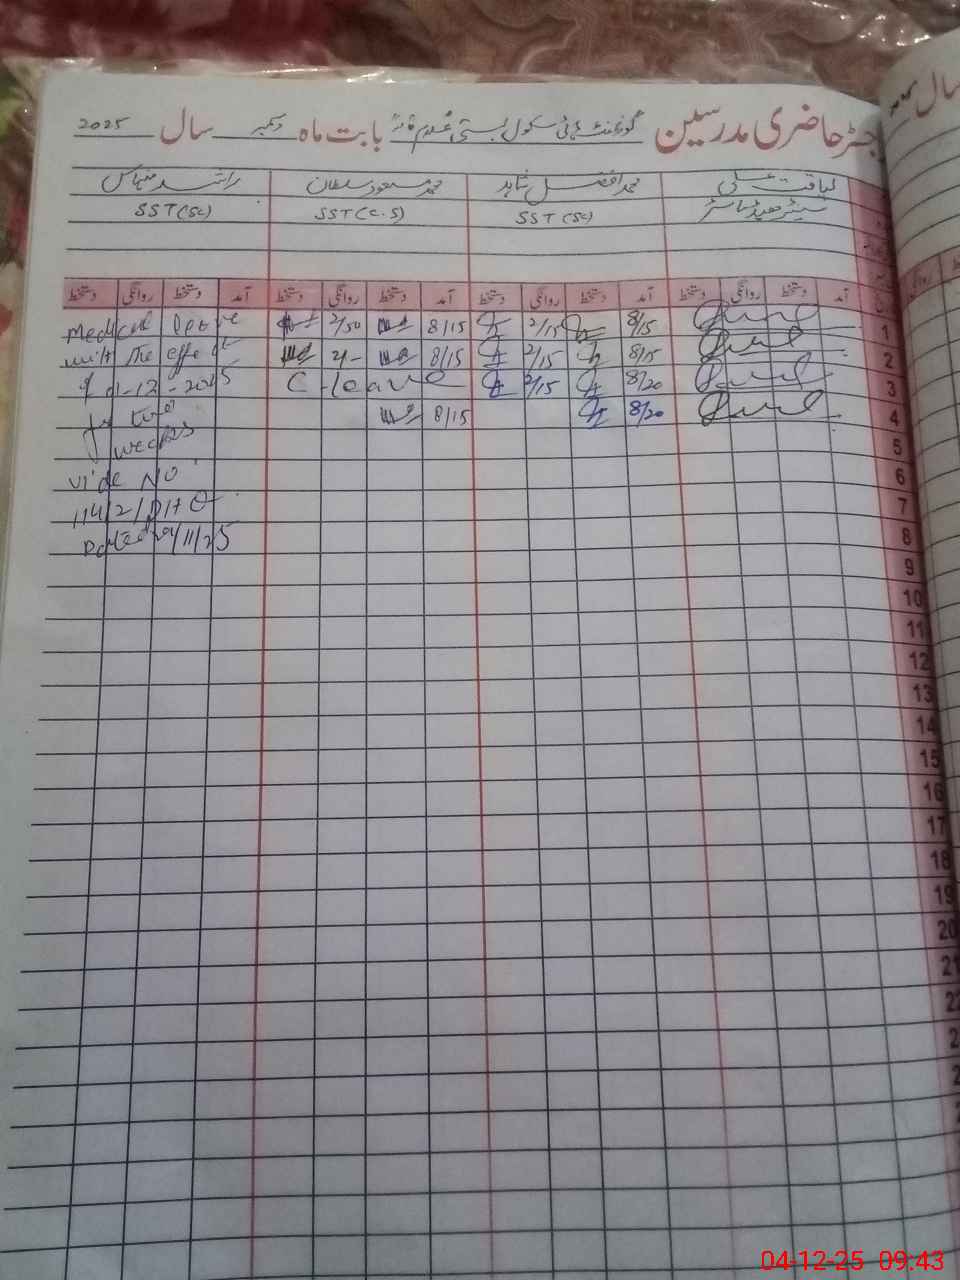 رجسٹر حاضری مدرسین گورنمنٹ ہائی سکول بستی بابت ماہ دسمبر سال 2025
لیاقت علی محمد افضل شاہد محمد مسعود سلطان راشد
سینئر ہیڈ ماسٹر SST (Sc) SST (C.S) SST (Sc)
آمد دستخط روانگی دستخط آمد دستخط روانگی دستخط آمد دستخط روانگی دستخط آمد دستخط روانگی دستخط
1 8/15 2/15 8/15 2/50 Medical leave
2 8/15 2/15 8/15 2/- with the effect
3 8/20 2/15 C-leave of 01-12-2025
4 8/20 8/15 for two
5 weeks
6 vide No
7 1142/DHO
8 Dated 29/11/25
9
10
11
12
13
14
15
16
17
18
19
20
21
22
سال
روانگی
04-12-25 09:43